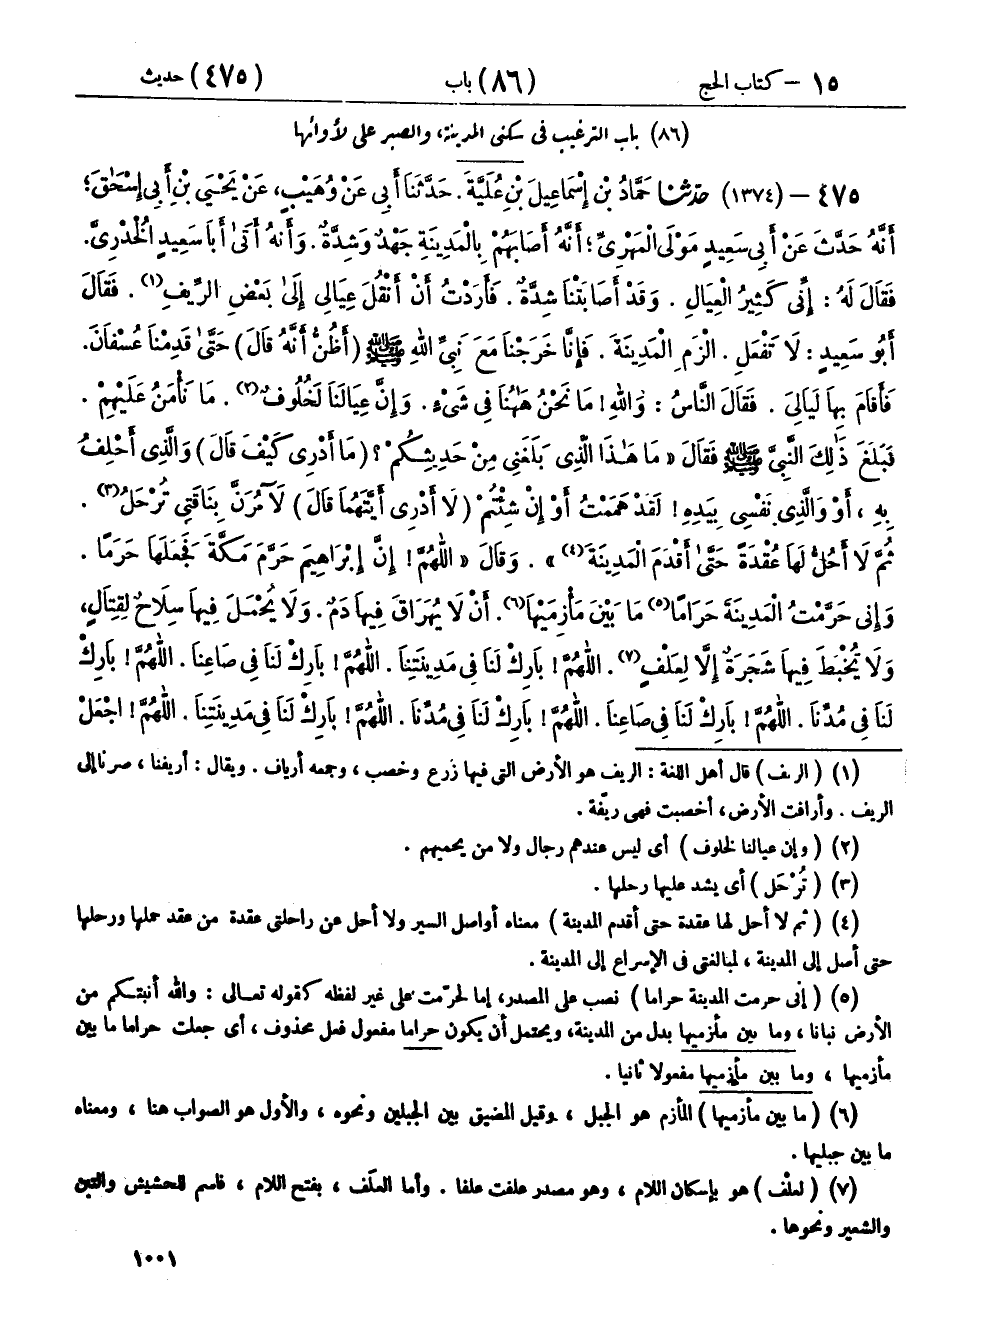 ١٥ – كتاب الحج (٨٦) باب (٤٧٥) حديث
(٨٦) باب الترغيب فى سكنى المدينة، والصبر على لأوائها
٤٧٥ – (١٣٧٤) حَدَّثَنَا حَمَّادُ بْنُ إِسْمَاعِيلَ بْنِ عُلَيَّةَ. حَدَّثَنَا أَبِي عَنْ وُهَيْبٍ، عَنْ يَحْيَى بْنِ أَبِي إِسْحَاقَ؛
أَنَّهُ حَدَّثَ عَنْ أَبِي سَعِيدٍ مَوْلَى الْمَهْرِيِّ؛ أَنَّهُ أَصَابَهُمْ بِالْمَدِينَةِ جَهْدٌ وَشِدَّةٌ. وَأَنَّهُ أَتَىٰ أَبَا سَعِيدٍ الْخُدْرِىَّ.
فَقَالَ لَهُ : إِنِّى كَثِيرُ الْعِيَالِ . وَقَدْ أَصَابَتْنَا شِدَّةٌ . فَأَرَدْتُ أَنْ أَنْقُلَ عِيَالِى إِلَىٰ بَعْضِ الرِّيفِ(١) . فَقَالَ
أَبُو سَعِيدٍ : لَا تَفْعَلْ . الْزَمِ الْمَدِينَةَ . فَإِنَّا خَرَجْنَا مَعَ نَبِيِّ اللهِ ﷺ (أَظُنُّ أَنَّهُ قَالَ) حَتَّىٰ قَدِمْنَا عُسْفَانَ.
فَأَقَامَ بِهَا لَيَالِىَ . فَقَالَ النَّاسُ : وَاللهِ! مَا نَحْنُ هَٰهُنَا فِى شَىْءٍ . وَإِنَّ عِيَالَنَا لَخُلُوفٌ(٢) . مَا نَأْمَنُ عَلَيْهِمْ .
فَبَلَغَ ذَٰلِكَ النَّبِيَّ ﷺ فَقَالَ « مَا هَٰذَا الَّذِى بَلَغَنِى مِنْ حَدِيثِكُمْ ؟ (مَا أَدْرِى كَيْفَ قَالَ) وَالَّذِى أَحْلِفُ
بِهِ ، أَوْ وَالَّذِى نَفْسِى بِيَدِهِ! لَقَدْ هَمَمْتُ أَوْ إِنْ شِئْتُمْ (لَا أَدْرِى أَيَّتَهُمَا قَالَ) لَآمُرَنَّ بِنَاقَتِى تُرْحَلُ(٣) .
ثُمَّ لَا أَحُلُّ لَهَا عُقْدَةً حَتَّىٰ أَقْدَمَ الْمَدِينَةَ(٤) » . وَقَالَ « اللَّهُمَّ! إِنَّ إِبْرَاهِيمَ حَرَّمَ مَكَّةَ فَجَعَلَهَا حَرَمًا .
وَإِنِّى حَرَّمْتُ الْمَدِينَةَ حَرَامًا(٥) مَا بَيْنَ مَأْزِمَيْهَا(٦). أَنْ لَا يُهَرَاقَ فِيهَا دَمٌ. وَلَا يُحْمَلَ فِيهَا سِلَاحٌ لِقِتَالٍ،
وَلَا يُخْبَطَ فِيهَا شَجَرَةٌ إِلَّا لِعَلْفٍ(٧). اللَّهُمَّ! بَارِكْ لَنَا فِى مَدِينَتِنَا. اللَّهُمَّ! بَارِكْ لَنَا فِى صَاعِنَا. اللَّهُمَّ! بَارِكْ
لَنَا فِى مُدِّنَا. اللَّهُمَّ! بَارِكْ لَنَا فِى صَاعِنَا. اللَّهُمَّ! بَارِكْ لَنَا فِى مُدِّنَا. اللَّهُمَّ! بَارِكْ لَنَا فِى مَدِينَتِنَا. اللَّهُمَّ! اجْعَلْ
(١) (الريف) قال أهل اللغة : الريف هو الأرض التى فيها زرع وخصب ، وجمعه أرياف . ويقال : أريفنا ، صرنا إلى
الريف . وأرافت الأرض، أخصبت فهى ريّفة .
(٢) (وإن عيالنا لخلوف) أى ليس عندهم رجال ولا من يحميهم .
(٣) (تُرْحَل) أى يشد عليها رحلها .
(٤) (ثم لا أحل لها عقدة حتى أقدم المدينة) معناه أواصل السير ولا أحل عن راحلتى عقدة من عقد حملها ورحلها
حتى أصل إلى المدينة ، لمبالغتى فى الإسراع إلى المدينة .
(٥) (إنى حرمت المدينة حراما) نصب على المصدر، إما لحرّمت على غير لفظه كقوله تعالى : والله أنبتكم من
الأرض نباتا ، وما بين مأزميها بدل من المدينة، ويحتمل أن يكون حراما مفعول فعل محذوف ، أى جعلت حراما ما بين
مأزميها ، وما بين مأزميها مفعولا ثانيا .
(٦) (ما بين مأزميها) المأزم هو الجبل ، وقيل المضيق بين الجبلين ونحوه ، والأول هو الصواب هنا ، ومعناه
ما بين جبليها .
(٧) (لعلْف) هو بإسكان اللام ، وهو مصدر علفت علفا . وأما العلَف ، بفتح اللام ، فاسم للحشيش والتبن
والشعير ونحوها .
١٠٠١